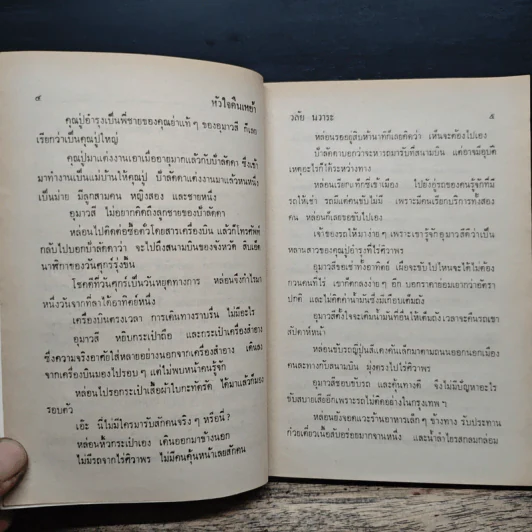 ๔ หัวใจคืนเหย้า
คุณปู่อำรุงเป็นพี่ชายของคุณย่าแท้ ๆ ของอุมาวสี ก็เลย
เรียกว่าเป็นคุณปู่ใหญ่
คุณปู่มาแต่งงานเอาเมื่ออายุมากแล้วกับป้าลัดดา ซึ่งเข้า
มาทำงานเป็นแม่บ้านให้คุณปู่ ป้าลัดดาแต่งงานมาแล้วหนหนึ่ง
เป็นม่าย มีลูกสามคน หญิงสอง และชายหนึ่ง
อุมาวสี ไม่อยากคิดถึงลูกชายของป้าลัดดา
หล่อนไปติดต่อซื้อตั๋วโดยสารเครื่องบิน แล้วก็โทรศัพท์
กลับไปบอกป้าลัดดาว่า จะไปถึงสนามบินของจังหวัด สิบเอ็ด
นาฬิกาของวันศุกร์รุ่งขึ้น
โชคดีที่วันศุกร์เป็นวันหยุดทางการ หล่อนจึงกำไรมา
หนึ่งวันจากที่ลาได้อาทิตย์หนึ่ง
เครื่องบินตรงเวลา การเดินทางราบรื่น ไม่มีอะไร
อุมาวสี หยิบกระเป๋าถือ และกระเป๋าเครื่องสำอาง
ซึ่งความจริงอาศัยใส่หลายอย่างนอกจากเครื่องสำอาง เดินลง
จากเครื่องบินมองไปรอบ ๆ แต่ไม่พบหน้าคนรู้จัก
หล่อนไปรอกระเป๋าเสื้อผ้าใบกะทัดรัด ได้มาแล้วก็มอง
รอบตัว
เอ๊ะ นี่ไม่มีใครมารับสักคนจริง ๆ หรือนี่?
หล่อนหิ้วกระเป๋าเอง เดินออกมาข้างนอก
ไม่มีรถจากไร่ศิวาพร ไม่มีคนคุ้นหน้าเลยสักคน
วลัย นวาระ ๕
หล่อนรออยู่สิบห้านาทีก็เลยคิดว่า เห็นจะต้องไปเอง
ป้าลัดดาบอกว่าจะหารถมารับที่สนามบิน แต่อาจมีอุบัติ
เหตุอะไรก็ได้ระหว่างทาง
หล่อนเรียกแท็กซี่เข้าเมือง ไปยังอู่รถของคนรู้จักที่มี
รถให้เช่า รถมีแต่คนขับไม่มี เพราะมีคนเรียกบริการทั้งสอง
คน หล่อนก็เลยขอขับไปเอง
เจ้าของรถให้มาง่าย ๆ เพราะเขารู้จักอุมาวสีดีว่าเป็น
หลานสาวของคุณปู่อำรุงที่ไร่ศิวาพร
อุมาวสีขอเช่าทั้งอาทิตย์ เผื่อจะขับไปไหนจะได้ไม่ต้อง
กวนคนที่ไร่ เขาก็ตกลงง่าย ๆ อีก บอกราคาย่อมเยาว่าอัตรา
ปกติ และไม่คิดค่าน้ำมันซึ่งมีเกือบเต็มถัง
อุมาวสีตั้งใจจะเติมน้ำมันที่อื่น ให้เต็มถังเวลาจะคืนรถเขา
สัปดาห์หน้า
หล่อนขับรถญี่ปุ่นสีแดงคันเล็กมาตามถนนออกนอกเมือง
คนละทางกับสนามบิน มุ่งตรงไปไร่ศิวาพร
อุมาวสีชอบขับรถ และคุ้นทางดี จึงไม่มีปัญหาอะไร
ขับสบายเสียอีกเพราะรถไม่ติดอย่างในกรุงเทพ ฯ
หล่อนยังจอดแวะร้านอาหารเล็ก ๆ ข้างทาง รับประทาน
ก๋วยเตี๋ยวเนื้อสับอร่อยมากจานหนึ่ง และน้ำลำไยรสกลมกล่อม